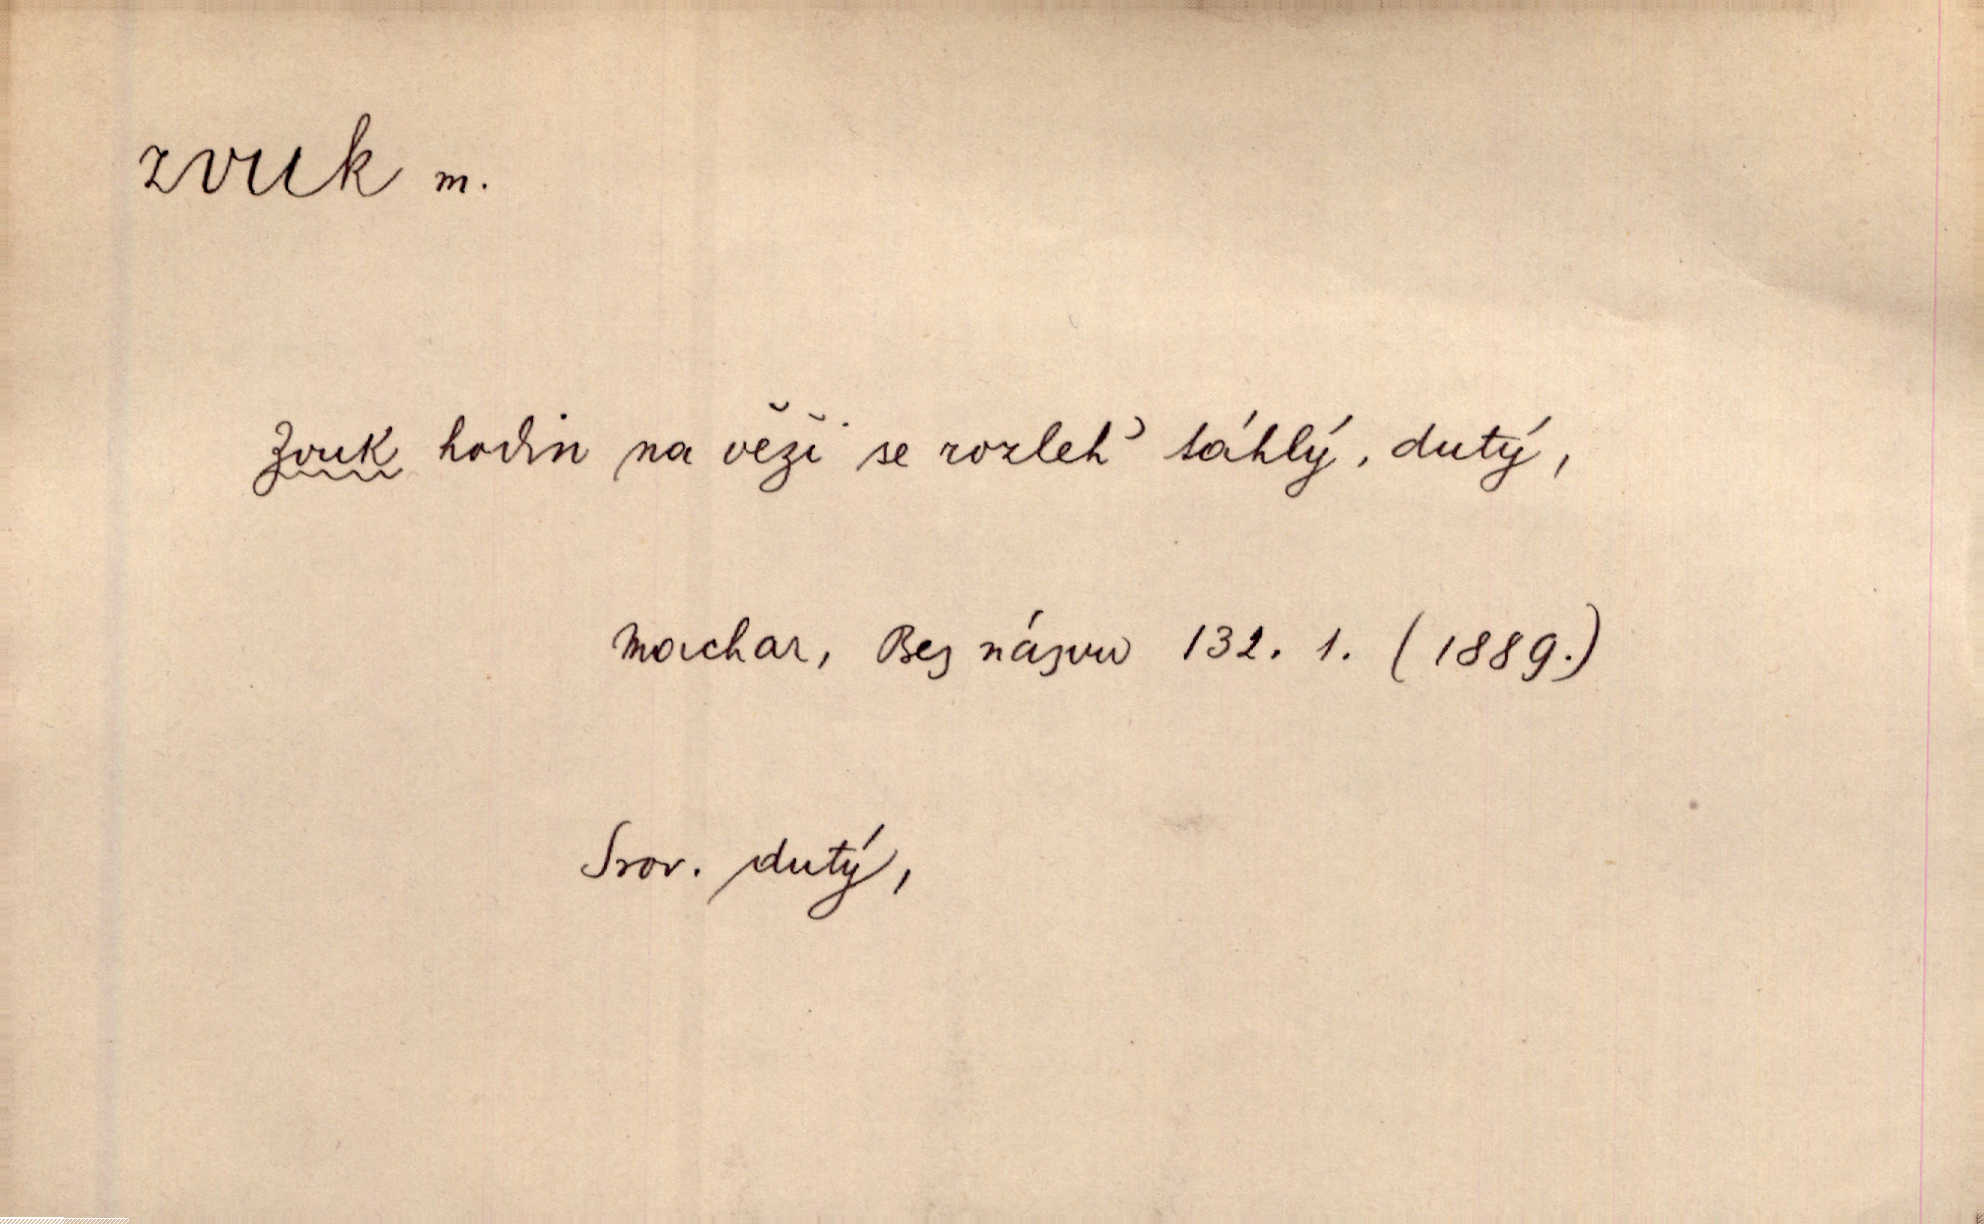 zvuk m.
Zvuk hodin na věži se rozleh' táhlý, dutý,
Machar, Bez názvu 132. 1. (1889.)
Srov. dutý,